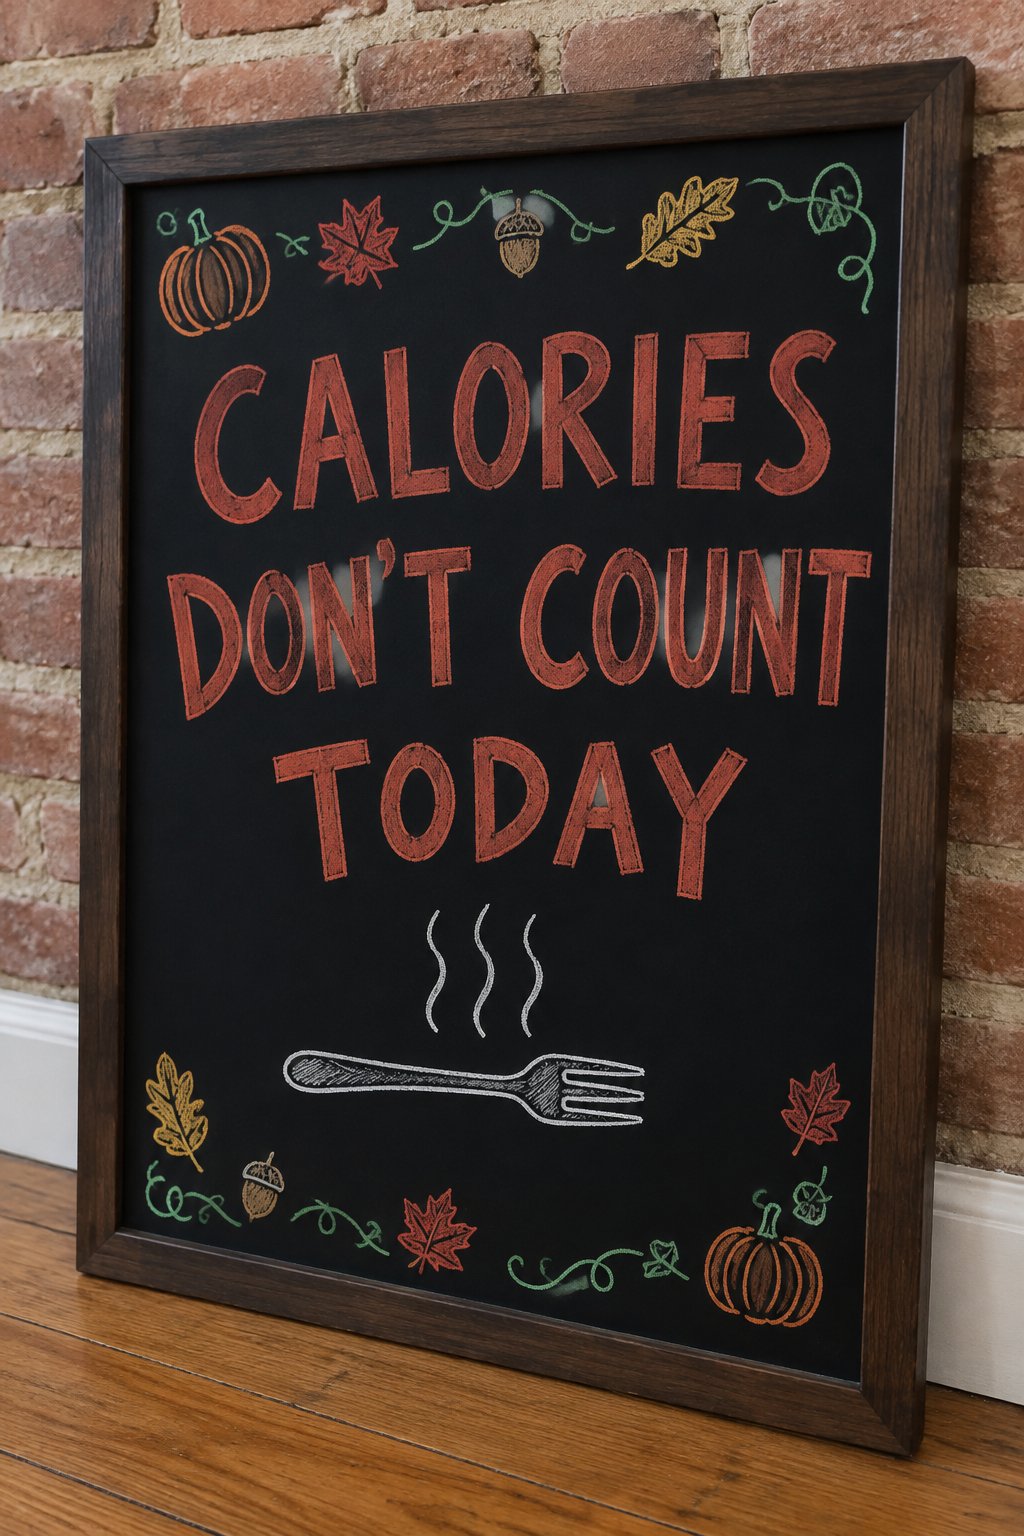 CALORIES
DON'T COUNT
TODAY